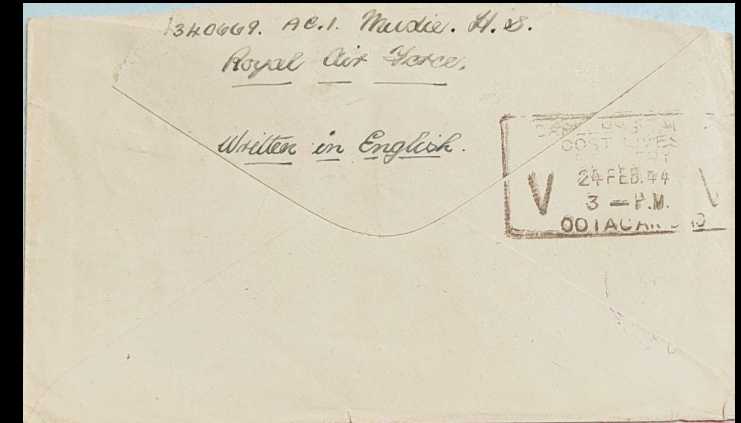 1340669. AC.1. Mudie. H. S.
Royal Air Force.
Written in English.
COST LIVES
24 FEB. 44
V 3 — P.M. V